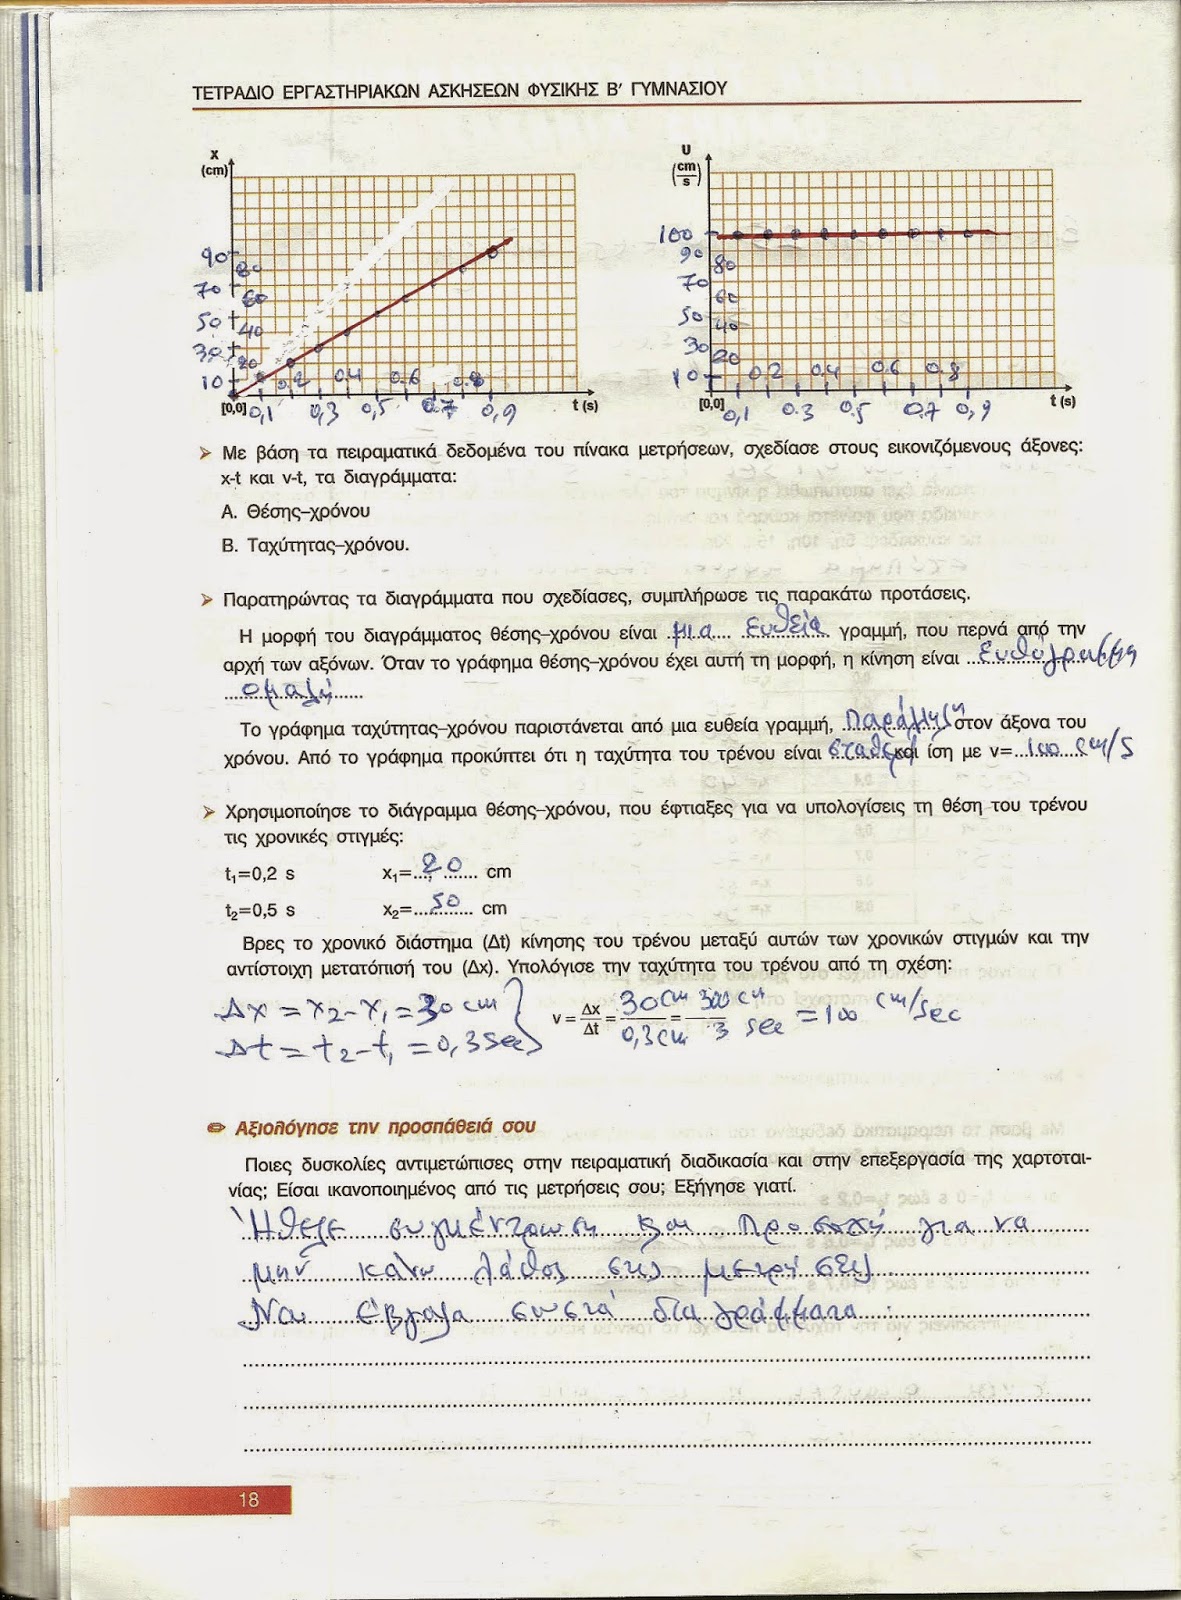 ΤΕΤΡΑΔΙΟ ΕΡΓΑΣΤΗΡΙΑΚΩΝ ΑΣΚΗΣΕΩΝ ΦΥΣΙΚΗΣ Β' ΓΥΜΝΑΣΙΟΥ
X (cm)
90
80
70
60
50
40
30
20
10
[0,0] 0,1 0.2 0,3 0.4 0,5 0.6 0.7 0.8 0,9 t (s)
U (cm/s)
100
90
80
70
60
50
40
30
20
10
[0,0] 0,1 0.2 0.3 0.4 0.5 0.6 0.7 0.8 0,9 t (s)
➢ Με βάση τα πειραματικά δεδομένα του πίνακα μετρήσεων, σχεδίασε στους εικονιζόμενους άξονες:
x-t και v-t, τα διαγράμματα:
Α. Θέσης–χρόνου
Β. Ταχύτητας–χρόνου.
➢ Παρατηρώντας τα διαγράμματα που σχεδίασες, συμπλήρωσε τις παρακάτω προτάσεις.
Η μορφή του διαγράμματος θέσης–χρόνου είναι μια ευθεία γραμμή, που περνά από την
αρχή των αξόνων. Όταν το γράφημα θέσης–χρόνου έχει αυτή τη μορφή, η κίνηση είναι ευθύγραμμη
ομαλή
Το γράφημα ταχύτητας–χρόνου παριστάνεται από μια ευθεία γραμμή, παράλληλη στον άξονα του
χρόνου. Από το γράφημα προκύπτει ότι η ταχύτητα του τρένου είναι σταθερή και ίση με v= 100 cm/s
➢ Χρησιμοποίησε το διάγραμμα θέσης–χρόνου, που έφτιαξες για να υπολογίσεις τη θέση του τρένου
τις χρονικές στιγμές:
t₁=0,2 s x₁= 20 cm
t₂=0,5 s x₂= 50 cm
Βρες το χρονικό διάστημα (Δt) κίνησης του τρένου μεταξύ αυτών των χρονικών στιγμών και την
αντίστοιχη μετατόπισή του (Δx). Υπολόγισε την ταχύτητα του τρένου από τη σχέση:
Δx = x₂-x₁ = 30 cm
Δt = t₂-t₁ = 0,3 sec
v = Δx/Δt = 30 cm/0,3 cm = 300 cm/3 sec = 100 cm/sec
Αξιολόγησε την προσπάθειά σου
Ποιες δυσκολίες αντιμετώπισες στην πειραματική διαδικασία και στην επεξεργασία της χαρτοται-
νίας; Είσαι ικανοποιημένος από τις μετρήσεις σου; Εξήγησε γιατί.
Ήθελε συγκέντρωση και προσοχή για να
μην κάνω λάθος στις μετρήσεις
Ναι έβγαλα σωστά διαγράμματα.
18